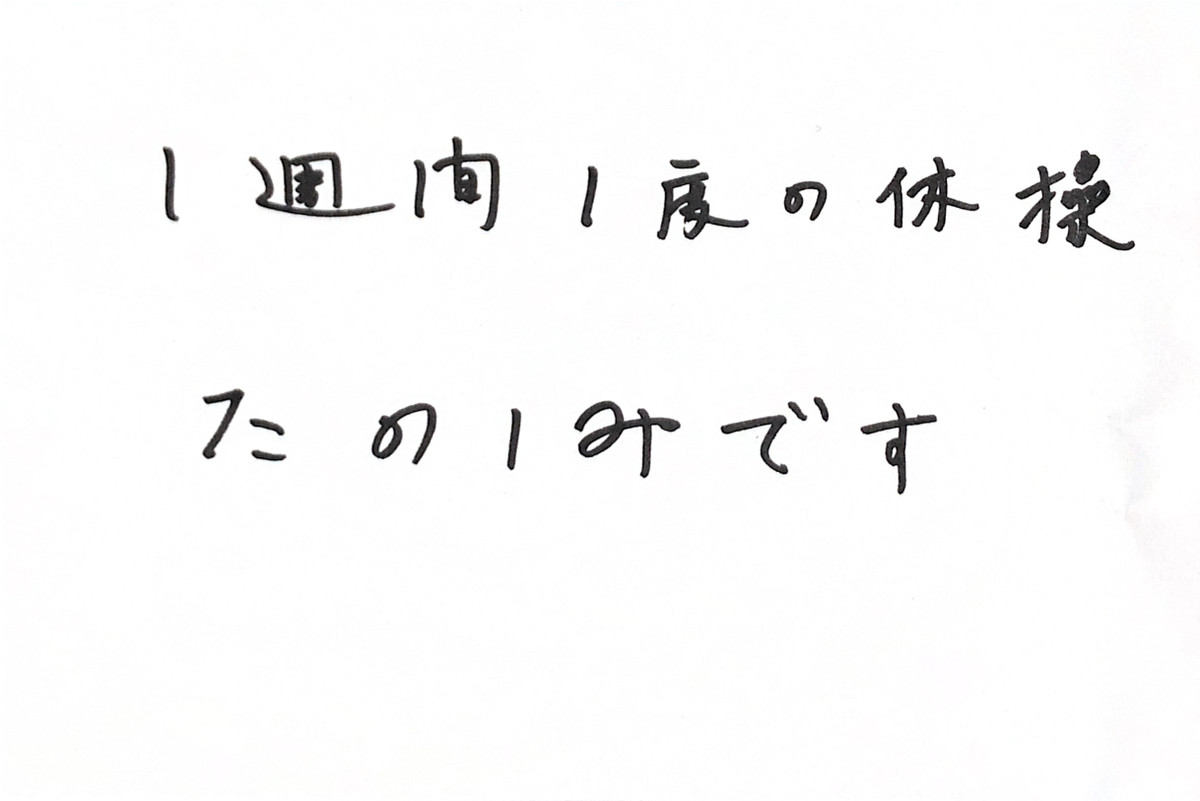 1週間1度の体操
たの1みです